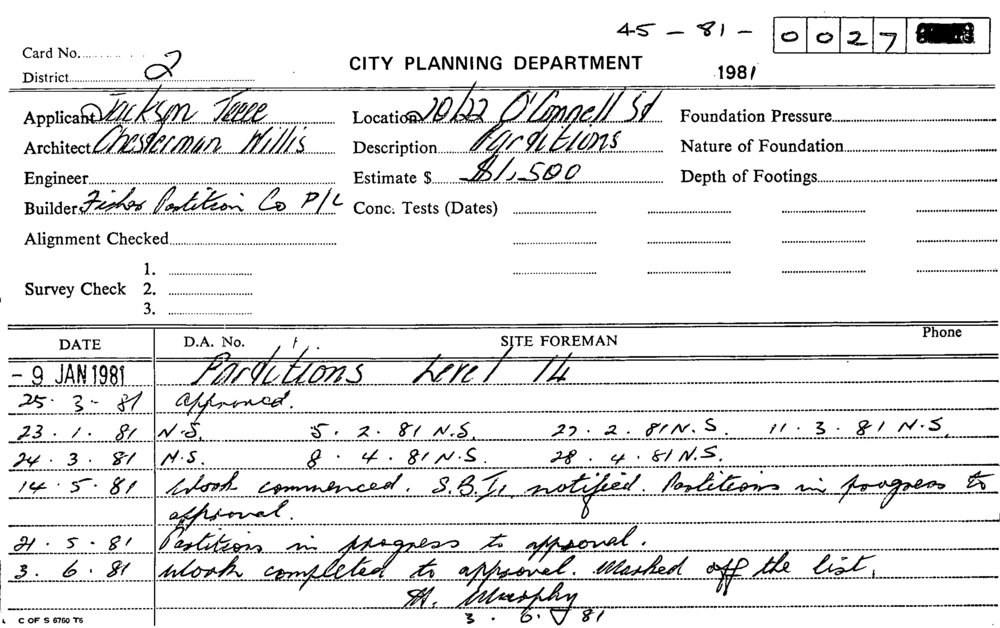 45 - 81 - 0027
Card No.
District 2
CITY PLANNING DEPARTMENT
1981
Applicant Jackson Teece
Location 20/22 O'Connell St
Foundation Pressure
Architect Chesterman Willis
Description Partitions
Nature of Foundation
Engineer
Estimate $ $1,500
Depth of Footings
Builder Fisher Partition Co P/L
Conc. Tests (Dates)
Alignment Checked
1.
Survey Check 2.
3.
DATE D.A. No. SITE FOREMAN Phone
- 9 JAN 1981 Partitions Level 14
25. 3- 81 approved.
23. 1. 81 N.S. 5. 2. 81 N.S. 27. 2. 81 N.S. 11. 3. 81 N.S.
24. 3. 81 N.S. 8. 4. 81 N.S. 28. 4. 81 N.S.
14. 5. 81 Work commenced. S.B.I. notified. Partitions in progress to
approval.
21. 5. 81 Partitions in progress to approval.
3. 6. 81 Work completed to approval. Marked off the list.
Murphy
3. 6. 81
C OF S 6760 T6